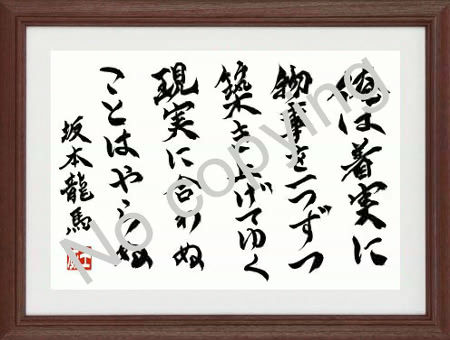 俺は着実に
物事を一つずつ
築き上げてゆく
現実に合わぬ
ことはやらぬ
坂本龍馬
No copying